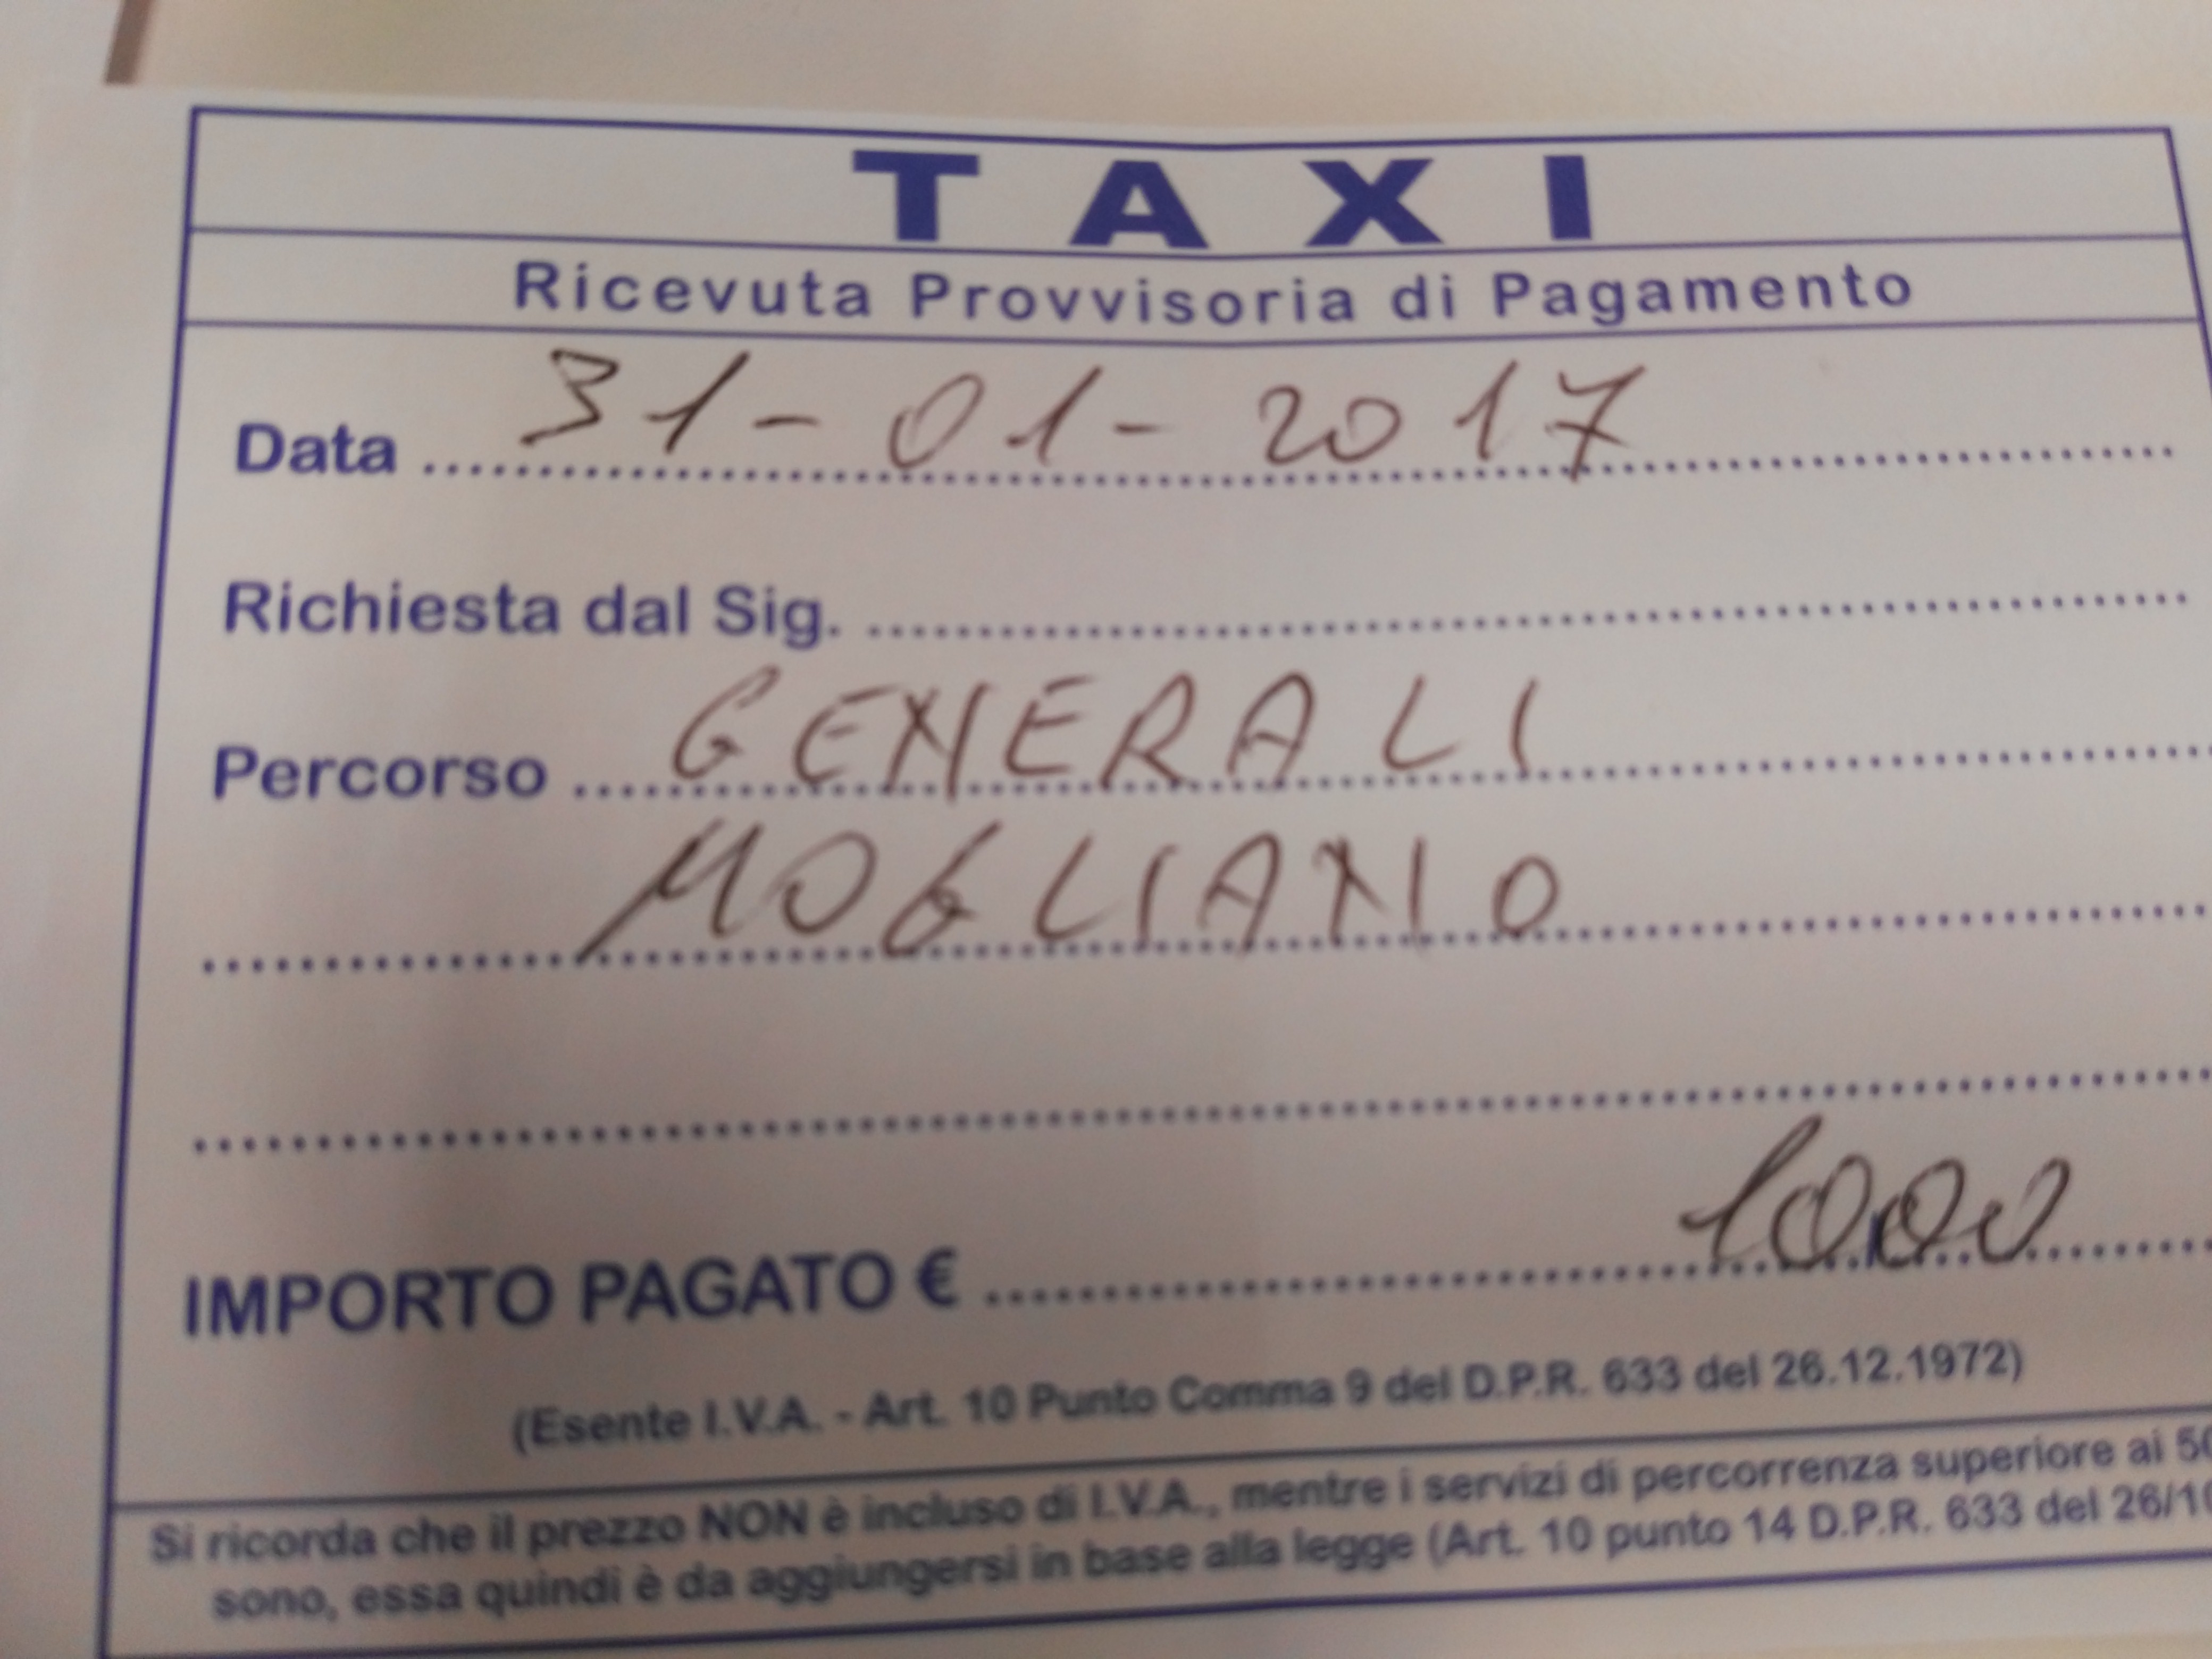 TAXI
Ricevuta Provvisoria di Pagamento
Data 31-01-2017
Richiesta dal Sig.
Percorso GENERALI
MOGLIANO
IMPORTO PAGATO € 10,00
(Esente I.V.A. - Art. 10 Punto Comma 9 del D.P.R. 633 del 26.12.1972)
Si ricorda che il prezzo NON è incluso di I.V.A., mentre i servizi di percorrenza superiore ai 50
sono, essa quindi è da aggiungersi in base alla legge (Art. 10 punto 14 D.P.R. 633 del 26/10